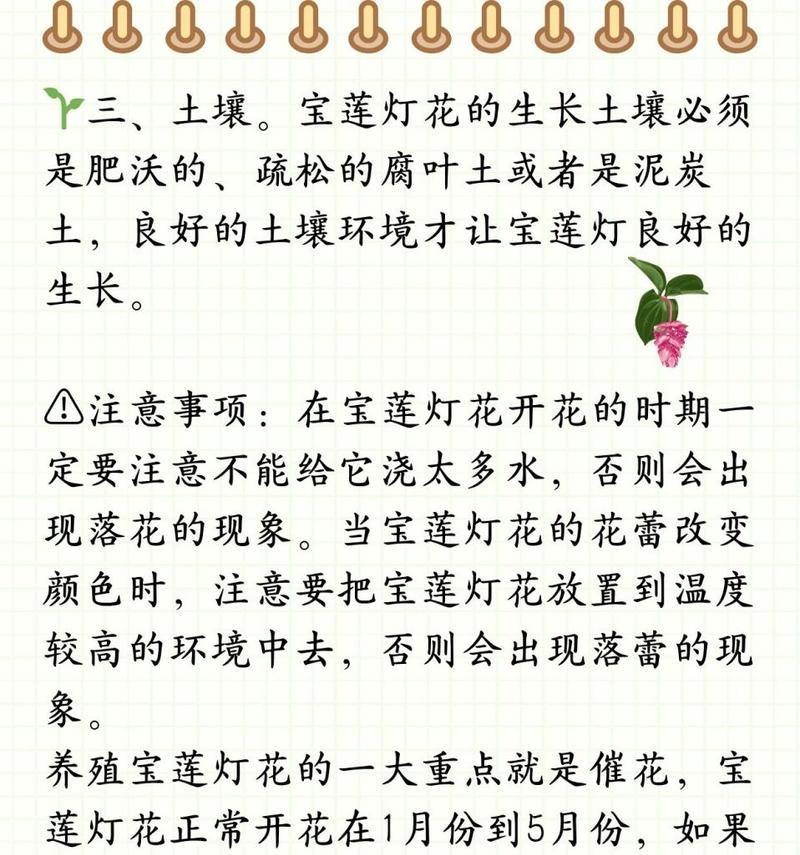 三、土壤。宝莲灯花的生长土壤必须
是肥沃的、疏松的腐叶土或者是泥炭
土，良好的土壤环境才让宝莲灯良好的
生长。
注意事项：在宝莲灯花开花的时期一
定要注意不能给它浇太多水，否则会出
现落花的现象。当宝莲灯花的花蕾改变
颜色时，注意要把宝莲灯花放置到温度
较高的环境中去，否则会出现落蕾的现
象。
养殖宝莲灯花的一大重点就是催花，宝
莲灯花正常开花在1月份到5月份，如果